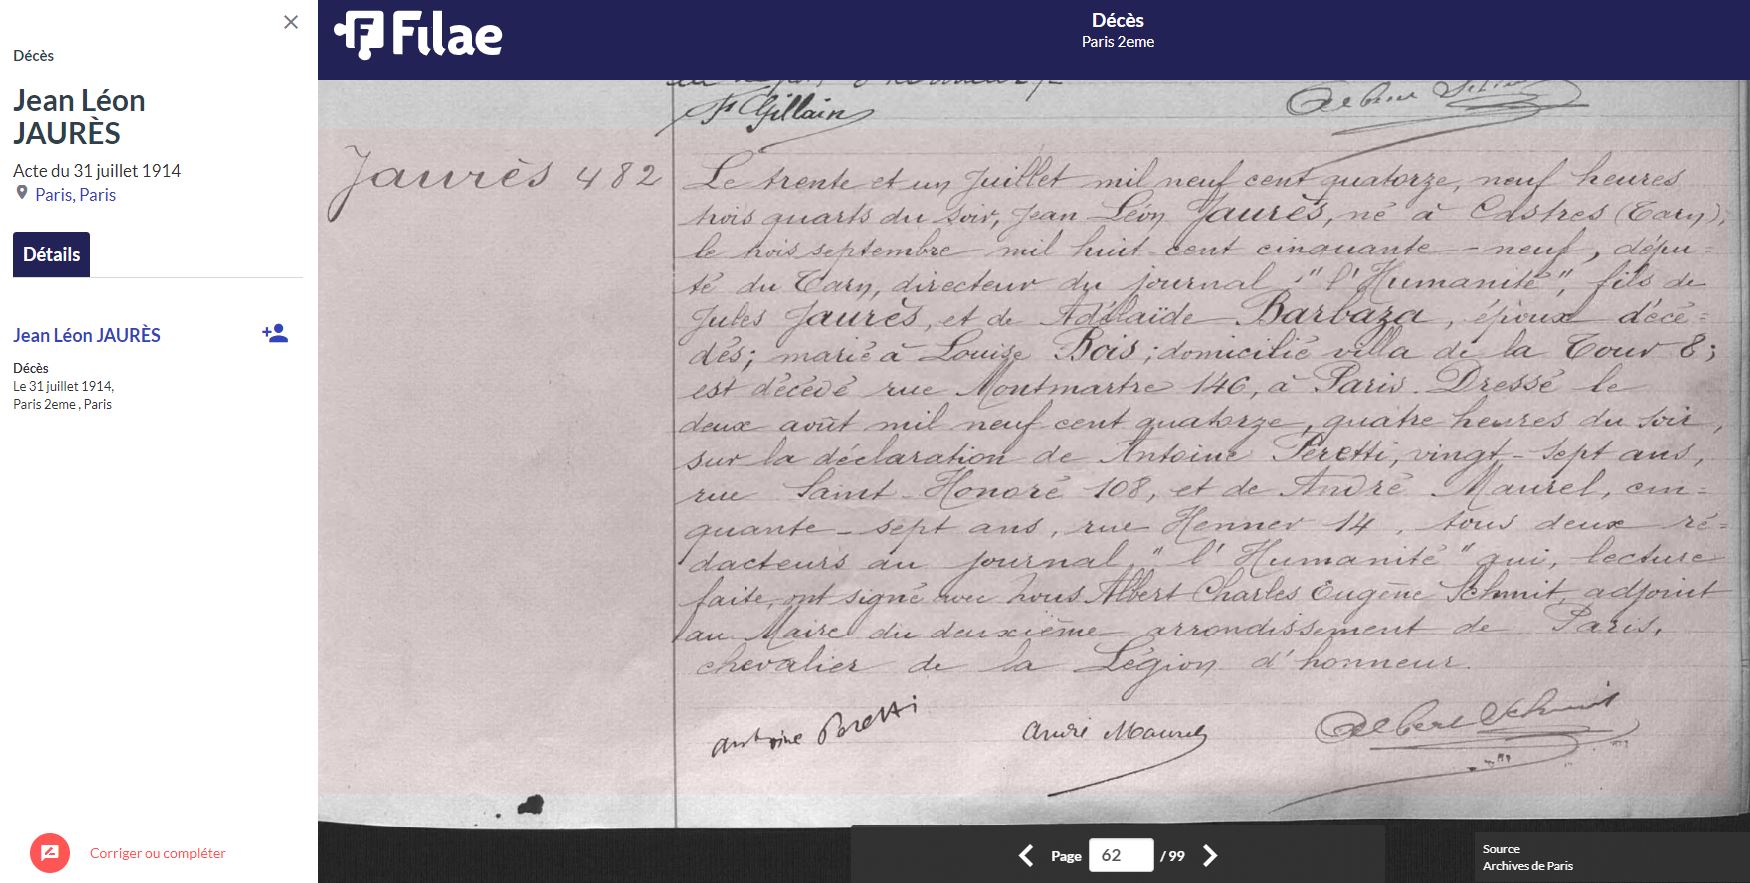 Décès
Jean Léon
JAURÈS
Acte du 31 juillet 1914
Paris, Paris
Détails
Jean Léon JAURÈS
Décès
Le 31 juillet 1914,
Paris 2eme , Paris
Corriger ou compléter
Filae
Décès
Paris 2eme
F. Gillain
Albert Schmit
Jaurès 482
Le trente et un Juillet mil neuf cent quatorze, neuf heures
trois quarts du soir, Jean Léon Jaurès, né à Castres (Tarn),
le trois septembre mil huit cent cinquante-neuf, dépu=
té du Tarn, directeur du journal "l'Humanité", fils de
Jules Jaurès, et de Adélaïde Barbaza, époux décé=
dés; marié à Louise Bois; domicilié villa de la Tour 8;
est décédé rue Montmartre 146, à Paris. Dressé le
deux août mil neuf cent quatorze, quatre heures du soir,
sur la déclaration de Antoine Peretti, vingt-sept ans,
rue Saint-Honoré 108, et de André Maurel, cin=
quante-sept ans, rue Henner 14, tous deux ré=
dacteurs au journal "l'Humanité" qui, lecture
faite, ont signé avec nous Albert Charles Eugène Schmit, adjoint
au Maire du deuxième arrondissement de Paris,
chevalier de la Légion d'honneur.
Antoine Peretti
André Maurel
Albert Schmit
Page 62 / 99
Source
Archives de Paris